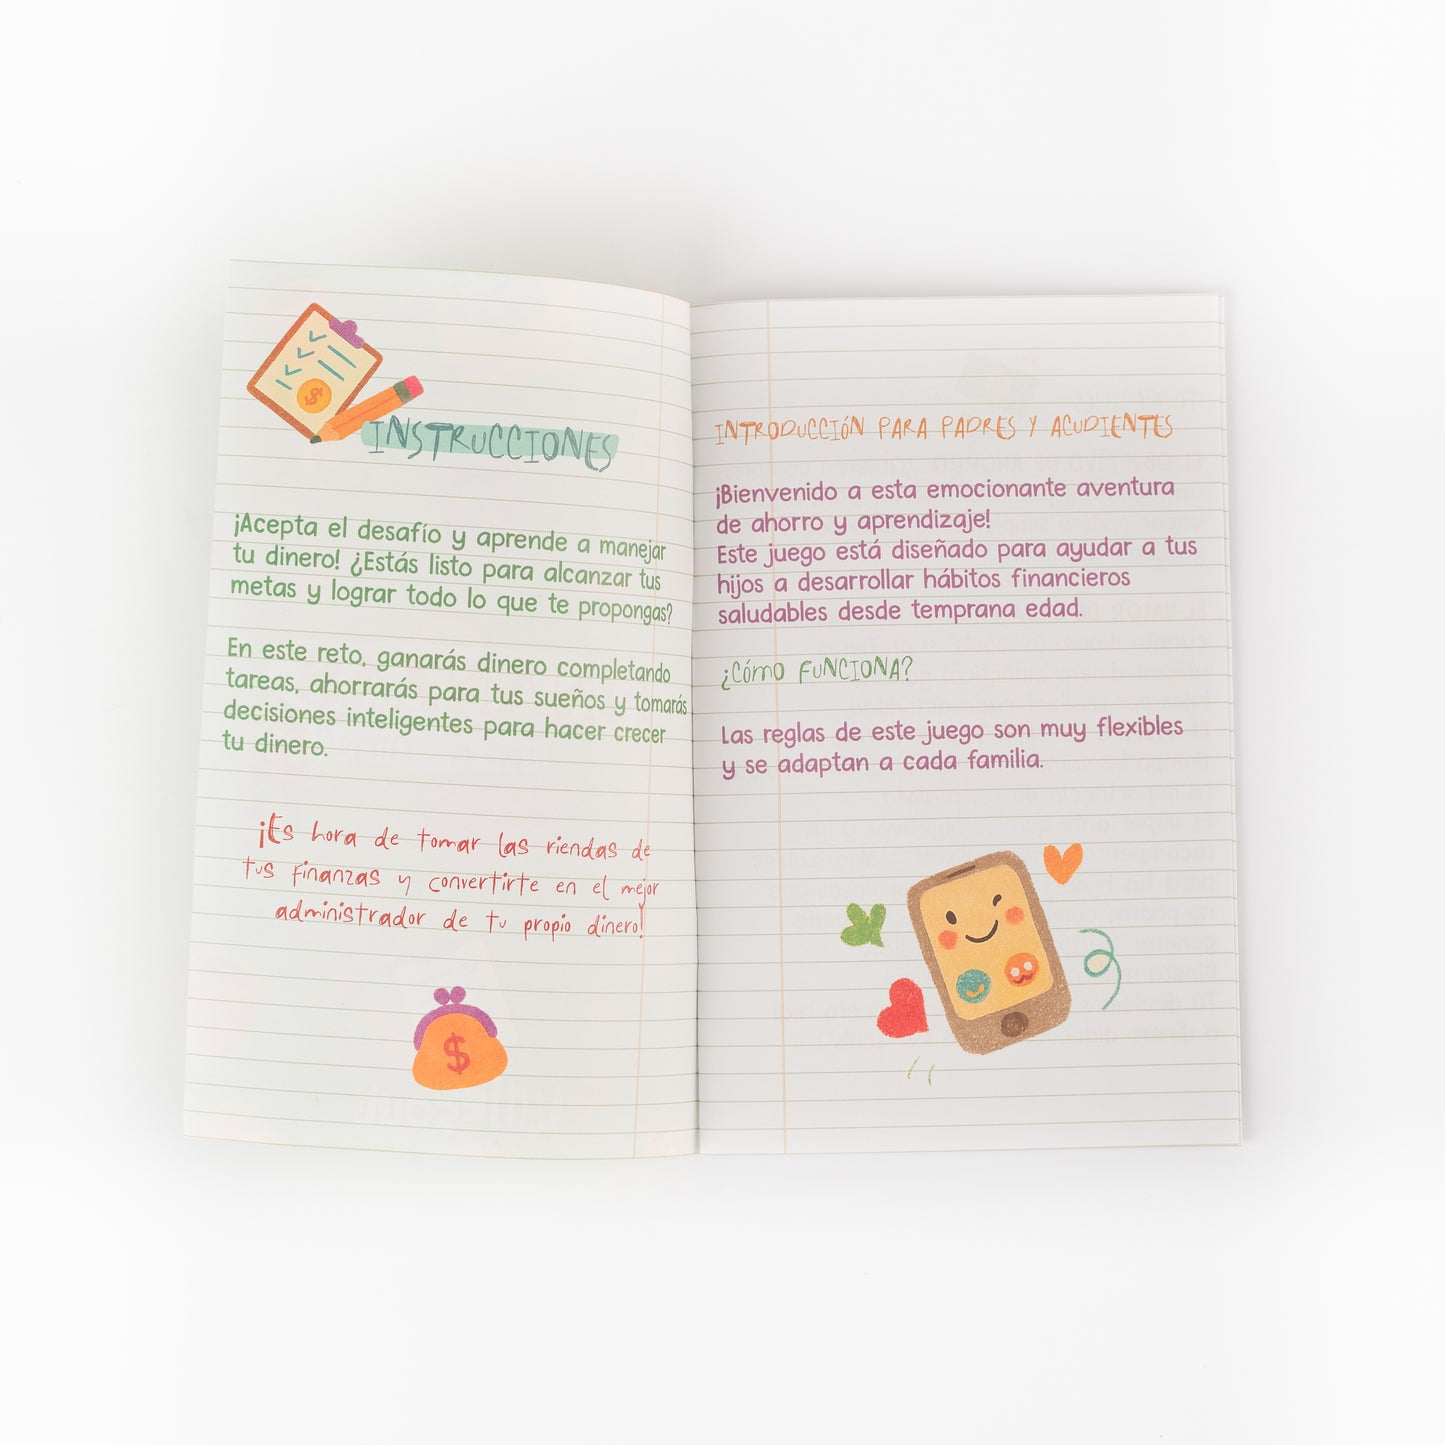 INSTRUCCIONES
¡Acepta el desafío y aprende a manejar
tu dinero! ¿Estás listo para alcanzar tus
metas y lograr todo lo que te propongas?
En este reto, ganarás dinero completando
tareas, ahorrarás para tus sueños y tomarás
decisiones inteligentes para hacer crecer
tu dinero.
¡Es hora de tomar las riendas de
tus finanzas y convertirte en el mejor
administrador de tu propio dinero!
$
INTRODUCCIÓN PARA PADRES Y ACUDIENTES
¡Bienvenido a esta emocionante aventura
de ahorro y aprendizaje!
Este juego está diseñado para ayudar a tus
hijos a desarrollar hábitos financieros
saludables desde temprana edad.
¿CÓMO FUNCIONA?
Las reglas de este juego son muy flexibles
y se adaptan a cada familia.